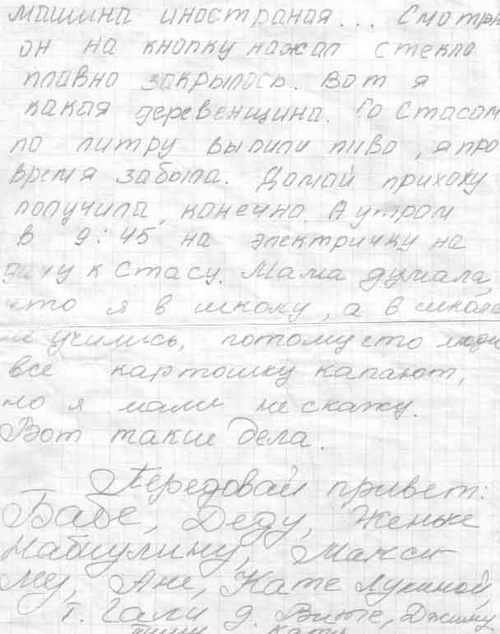 машина иностраная... Смотрю
он на кнопку нажал стекло
плавно закрылось. Вот я
какая деревенщина. Со Стасом
по литру выпили пиво, я про
время забыла. Домой прихожу
получила, конечно. А утром
в 9:45 на электричку на
дачу к Стасу. Мама думала,
что я в школу, а в школе
учились, потому што люди
все картошку капают,
но я маме не скажу.
Вот такие дела.
Передовай привет:
Бабе, Деду, Женьке
Набиулину, Макси
му, Ане, Кате Лукиной,
Т. Гали д. Вите, Джиму